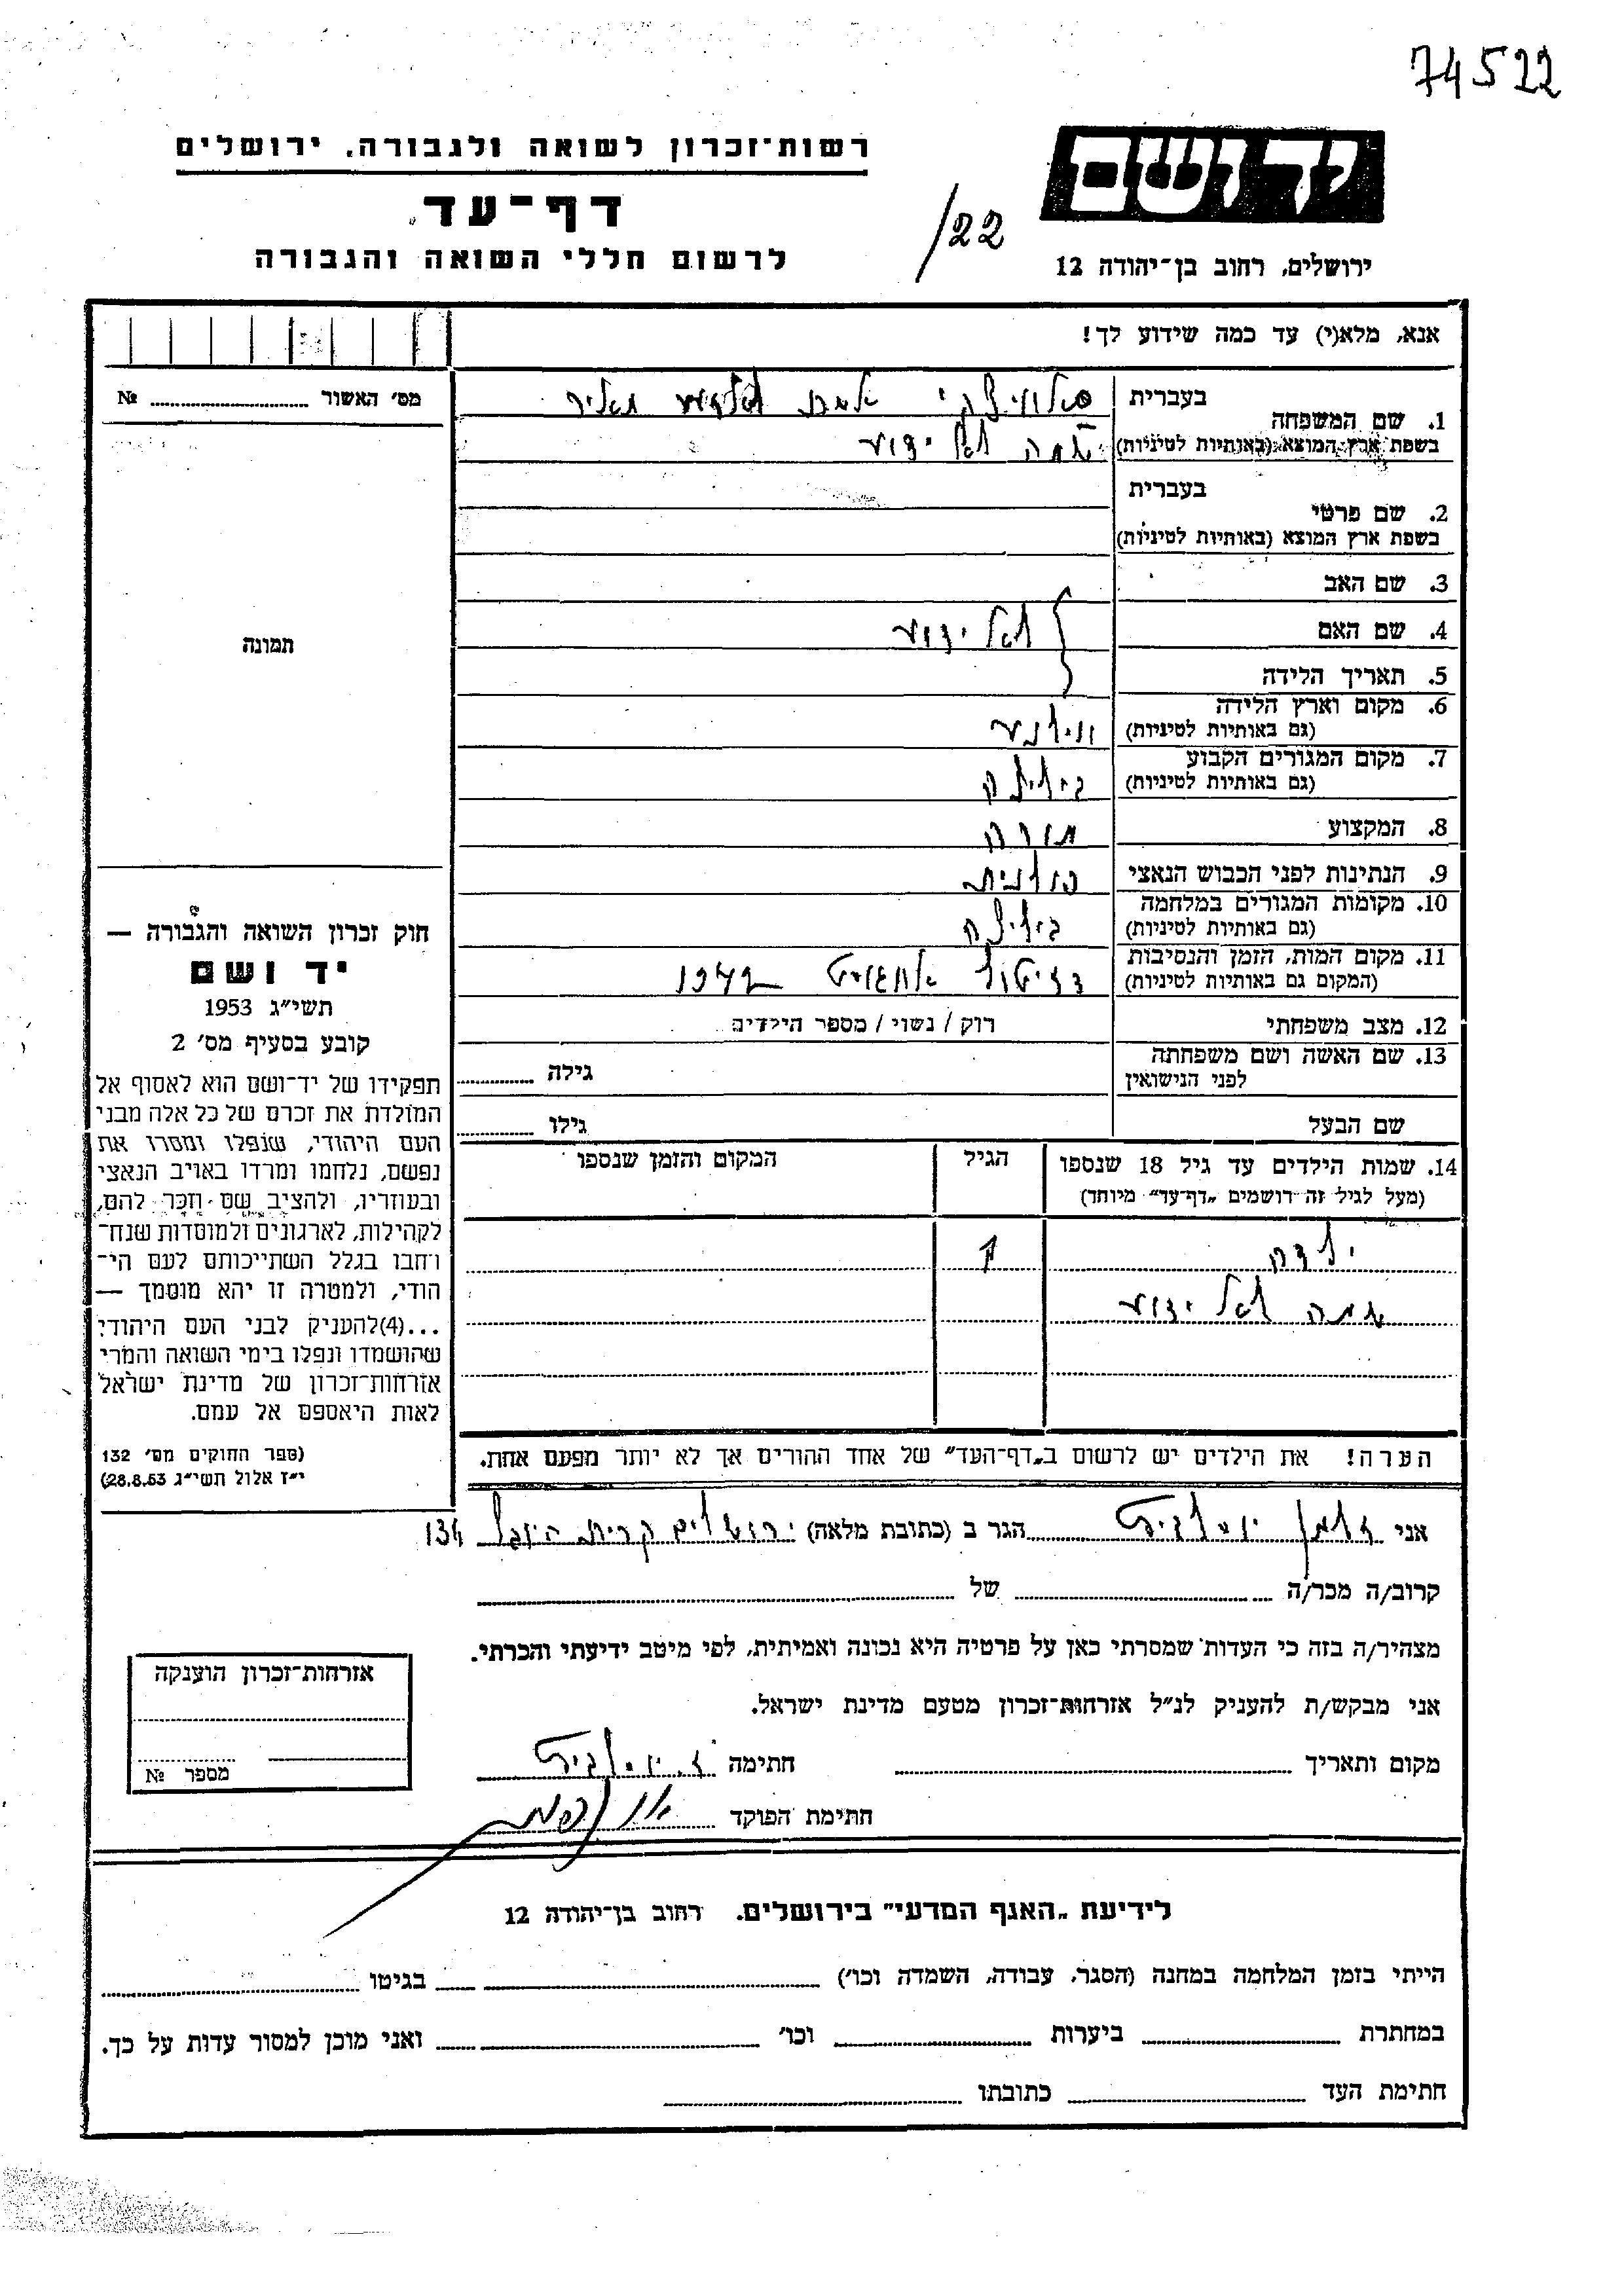 74522
יד ושם
ירושלים, רחוב בן־יהודה 12
/22
רשות־זכרון לשואה ולגבורה, ירושלים
דף־עד
לרשום חללי השואה והגבורה
אנא, מלא(י) עד כמה שידוע לך!
מס׳ האשור № 
1. שם המשפחה
בעברית
בשפת ארץ המוצא (באותיות לטיניות)
שמה לא ידוע
2. שם פרטי
בעברית
בשפת ארץ המוצא (באותיות לטיניות)
3. שם האב
4. שם האם לא ידוע
5. תאריך הלידה
6. מקום וארץ הלידה
(גם באותיות לטיניות) ווילנע
7. מקום המגורים הקבוע
(גם באותיות לטיניות)
8. המקצוע מורה
9. הנתינות לפני הכבוש הנאצי פולנית
10. מקומות המגורים במלחמה
(גם באותיות לטיניות)
11. מקום המות, הזמן והנסיבות
(המקום גם באותיות לטיניות) 1942
12. מצב משפחתי רוק / נשוי / מספר הילדים
13. שם האשה ושם משפחתה
לפני הנישואין גילה
שם הבעל גילו
14. שמות הילדים עד גיל 18 שנספו הגיל המקום והזמן שנספו
(מעל לגיל זה רושמים „דף־עד״ מיוחד)
ילדה 1
שמה לא ידוע
הערה! את הילדים יש לרשום ב„דף־העד״ של אחד ההורים אך לא יותר מפעם אחת.
תמונה
חוק זכרון השואה והגבורה —
יד ושם
תשי״ג 1953
קובע בסעיף מס׳ 2
תפקידו של יד־ושם הוא לאסוף אל
המולדת את זכרם של כל אלה מבני
העם היהודי, שנפלו ומסרו את
נפשם, נלחמו ומרדו באויב הנאצי
ובעוזריו, ולהציב שם וזכר להם,
לקהילות, לארגונים ולמוסדות שנח־
רבו בגלל השתייכותם לעם הי־
הודי, ולמטרה זו יהא מוסמך —
...(4)להעניק לבני העם היהודי
שהושמדו ונפלו בימי השואה והמרי
אזרחות־זכרון של מדינת ישראל
לאות היאספם אל עמם.
(ספר החוקים מס׳ 132
י״ז אלול תשי״ג 28.8.53)
אני הגר ב (כתובת מלאה) ירושלים קרית היובל 134
קרוב/ה מכר/ה של
מצהיר/ה בזה כי העדות שמסרתי כאן על פרטיה היא נכונה ואמיתית, לפי מיטב ידיעתי והכרתי.
אני מבקש/ת להעניק לנ״ל אזרחות־זכרון מטעם מדינת ישראל.
מקום ותאריך חתימה
חתימת הפוקד
אזרחות־זכרון הוענקה
מספר №
לידיעת „האגף המדעי״ בירושלים. רחוב בן־יהודה 12
הייתי בזמן המלחמה במחנה (הסגר, עבודה, השמדה וכו׳) בגיטו
במחתרת ביערות וכו׳ ואני מוכן למסור עדות על כך.
חתימת העד כתובתו